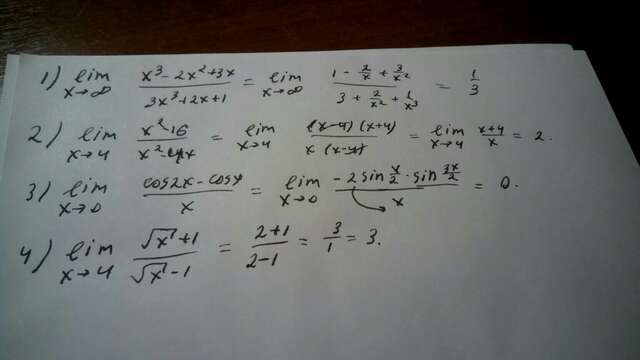 1) lim x→∞ (x³-2x²+3x)/(3x³+2x+1) = lim x→∞ (1 - 2/x + 3/x²)/(3 + 2/x² + 1/x³) = 1/3
2) lim x→4 (x²-16)/(x²-4x) = lim x→4 ((x-4)(x+4))/(x(x-4)) = lim x→4 (x+4)/x = 2.
3) lim x→0 (cos2x - cosx)/x = lim x→0 (-2 sin x/2 · sin 3x/2)/x = 0.
4) lim x→4 (√x+1)/(√x-1) = (2+1)/(2-1) = 3/1 = 3.